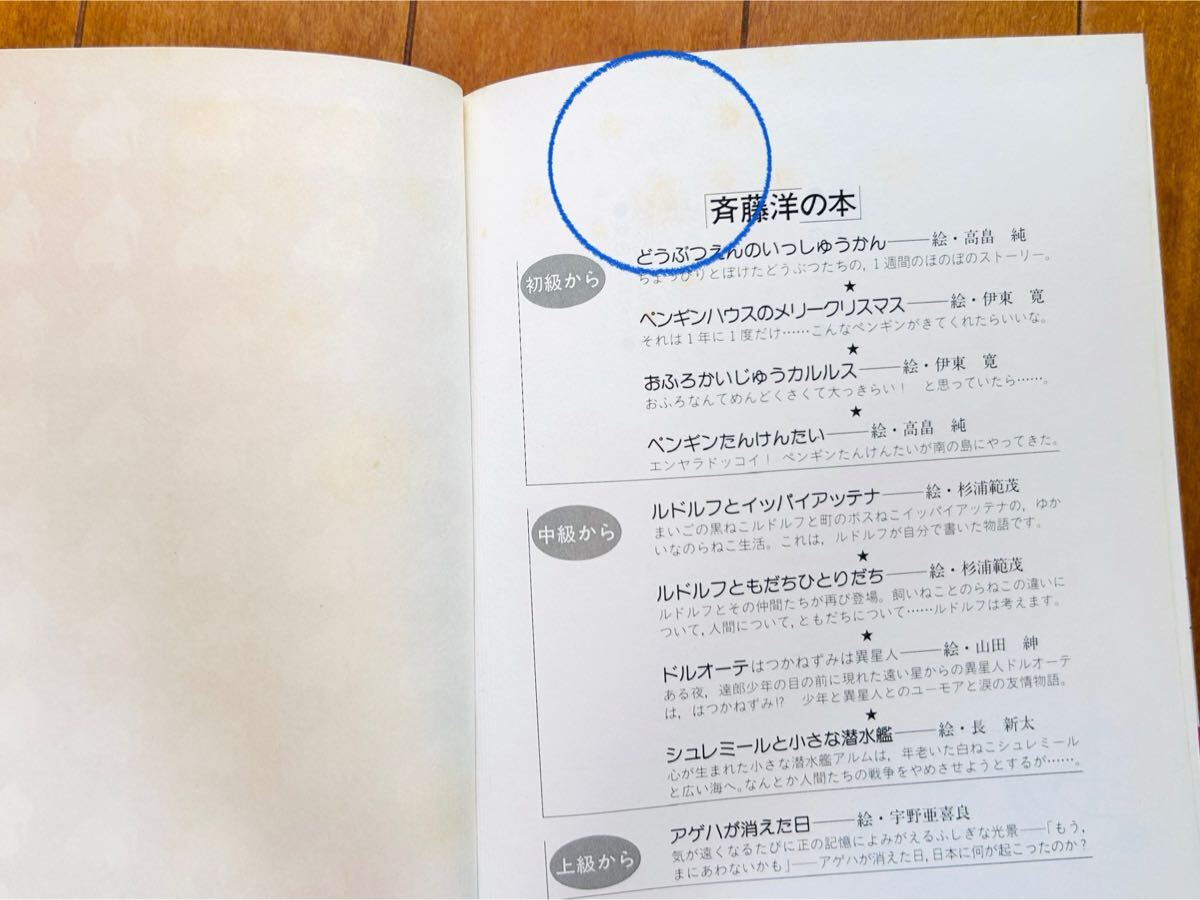 斉藤洋の本
初級から
どうぶつえんのいっしゅうかん――絵・高畠 純
ちょっぴりとぼけたどうぶつたちの,1週間のほのぼのストーリー。
★
ペンギンハウスのメリークリスマス――絵・伊東 寛
それは1年に1度だけ……こんなペンギンがきてくれたらいいな。
★
おふろかいじゅうカルルス――絵・伊東 寛
おふろなんてめんどくさくて大っきらい! と思っていたら……。
★
ペンギンたんけんたい――絵・高畠 純
エンヤラドッコイ! ペンギンたんけんたいが南の島にやってきた。
中級から
ルドルフとイッパイアッテナ――絵・杉浦範茂
まいごの黒ねこルドルフと町のボスねこイッパイアッテナの,ゆか
いなのらねこ生活。これは,ルドルフが自分で書いた物語です。
★
ルドルフともだちひとりだち――絵・杉浦範茂
ルドルフとその仲間たちが再び登場。飼いねことのらねこの違いに
ついて,人間について,ともだちについて……ルドルフは考えます。
★
ドルオーテはつかねずみは異星人――絵・山田 紳
ある夜,達郎少年の目の前に現れた遠い星からの異星人ドルオーテ
は,はつかねずみ!? 少年と異星人とのユーモアと涙の友情物語。
★
シュレミールと小さな潜水艦――絵・長 新太
心が生まれた小さな潜水艦アルムは,年老いた白ねこシュレミール
と広い海へ。なんとか人間たちの戦争をやめさせようとするが……。
上級から
アゲハが消えた日――絵・宇野亜喜良
気が遠くなるたびに正の記憶によみがえるふしぎな光景――「もう,
まにあわないかも」――アゲハが消えた日,日本に何が起こったのか?